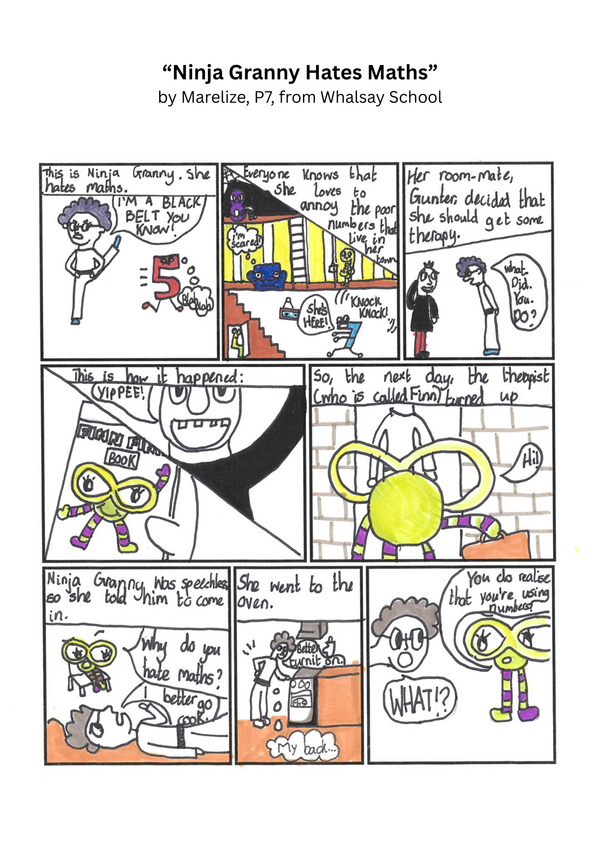 “Ninja Granny Hates Maths”
by Marelize, P7, from Whalsay School
This is Ninja Granny. She
hates maths.
I'M A BLACK
BELT YOU
KNOW!
5
Blah
blah
Everyone knows that
she loves to
annoy the poor
numbers that
live in
her
town
I'm
scared!
She's
HERE!
KNOCK
KNOCK!
7
Her room-mate,
Gunter, decided that
she should get some
therapy.
What.
Did.
You.
DO?
This is how it happened:
YIPPEE!
BOOK
So, the next day, the therapist
(who is called Finn) turned up
Hi!
Ninja Granny was speechless
so she told him to come
in.
Why do you
hate maths?
better go
cook.
She went to the
oven.
Better
turn it on.
My back...
You do realise
that you're using
numbers?
WHAT!?